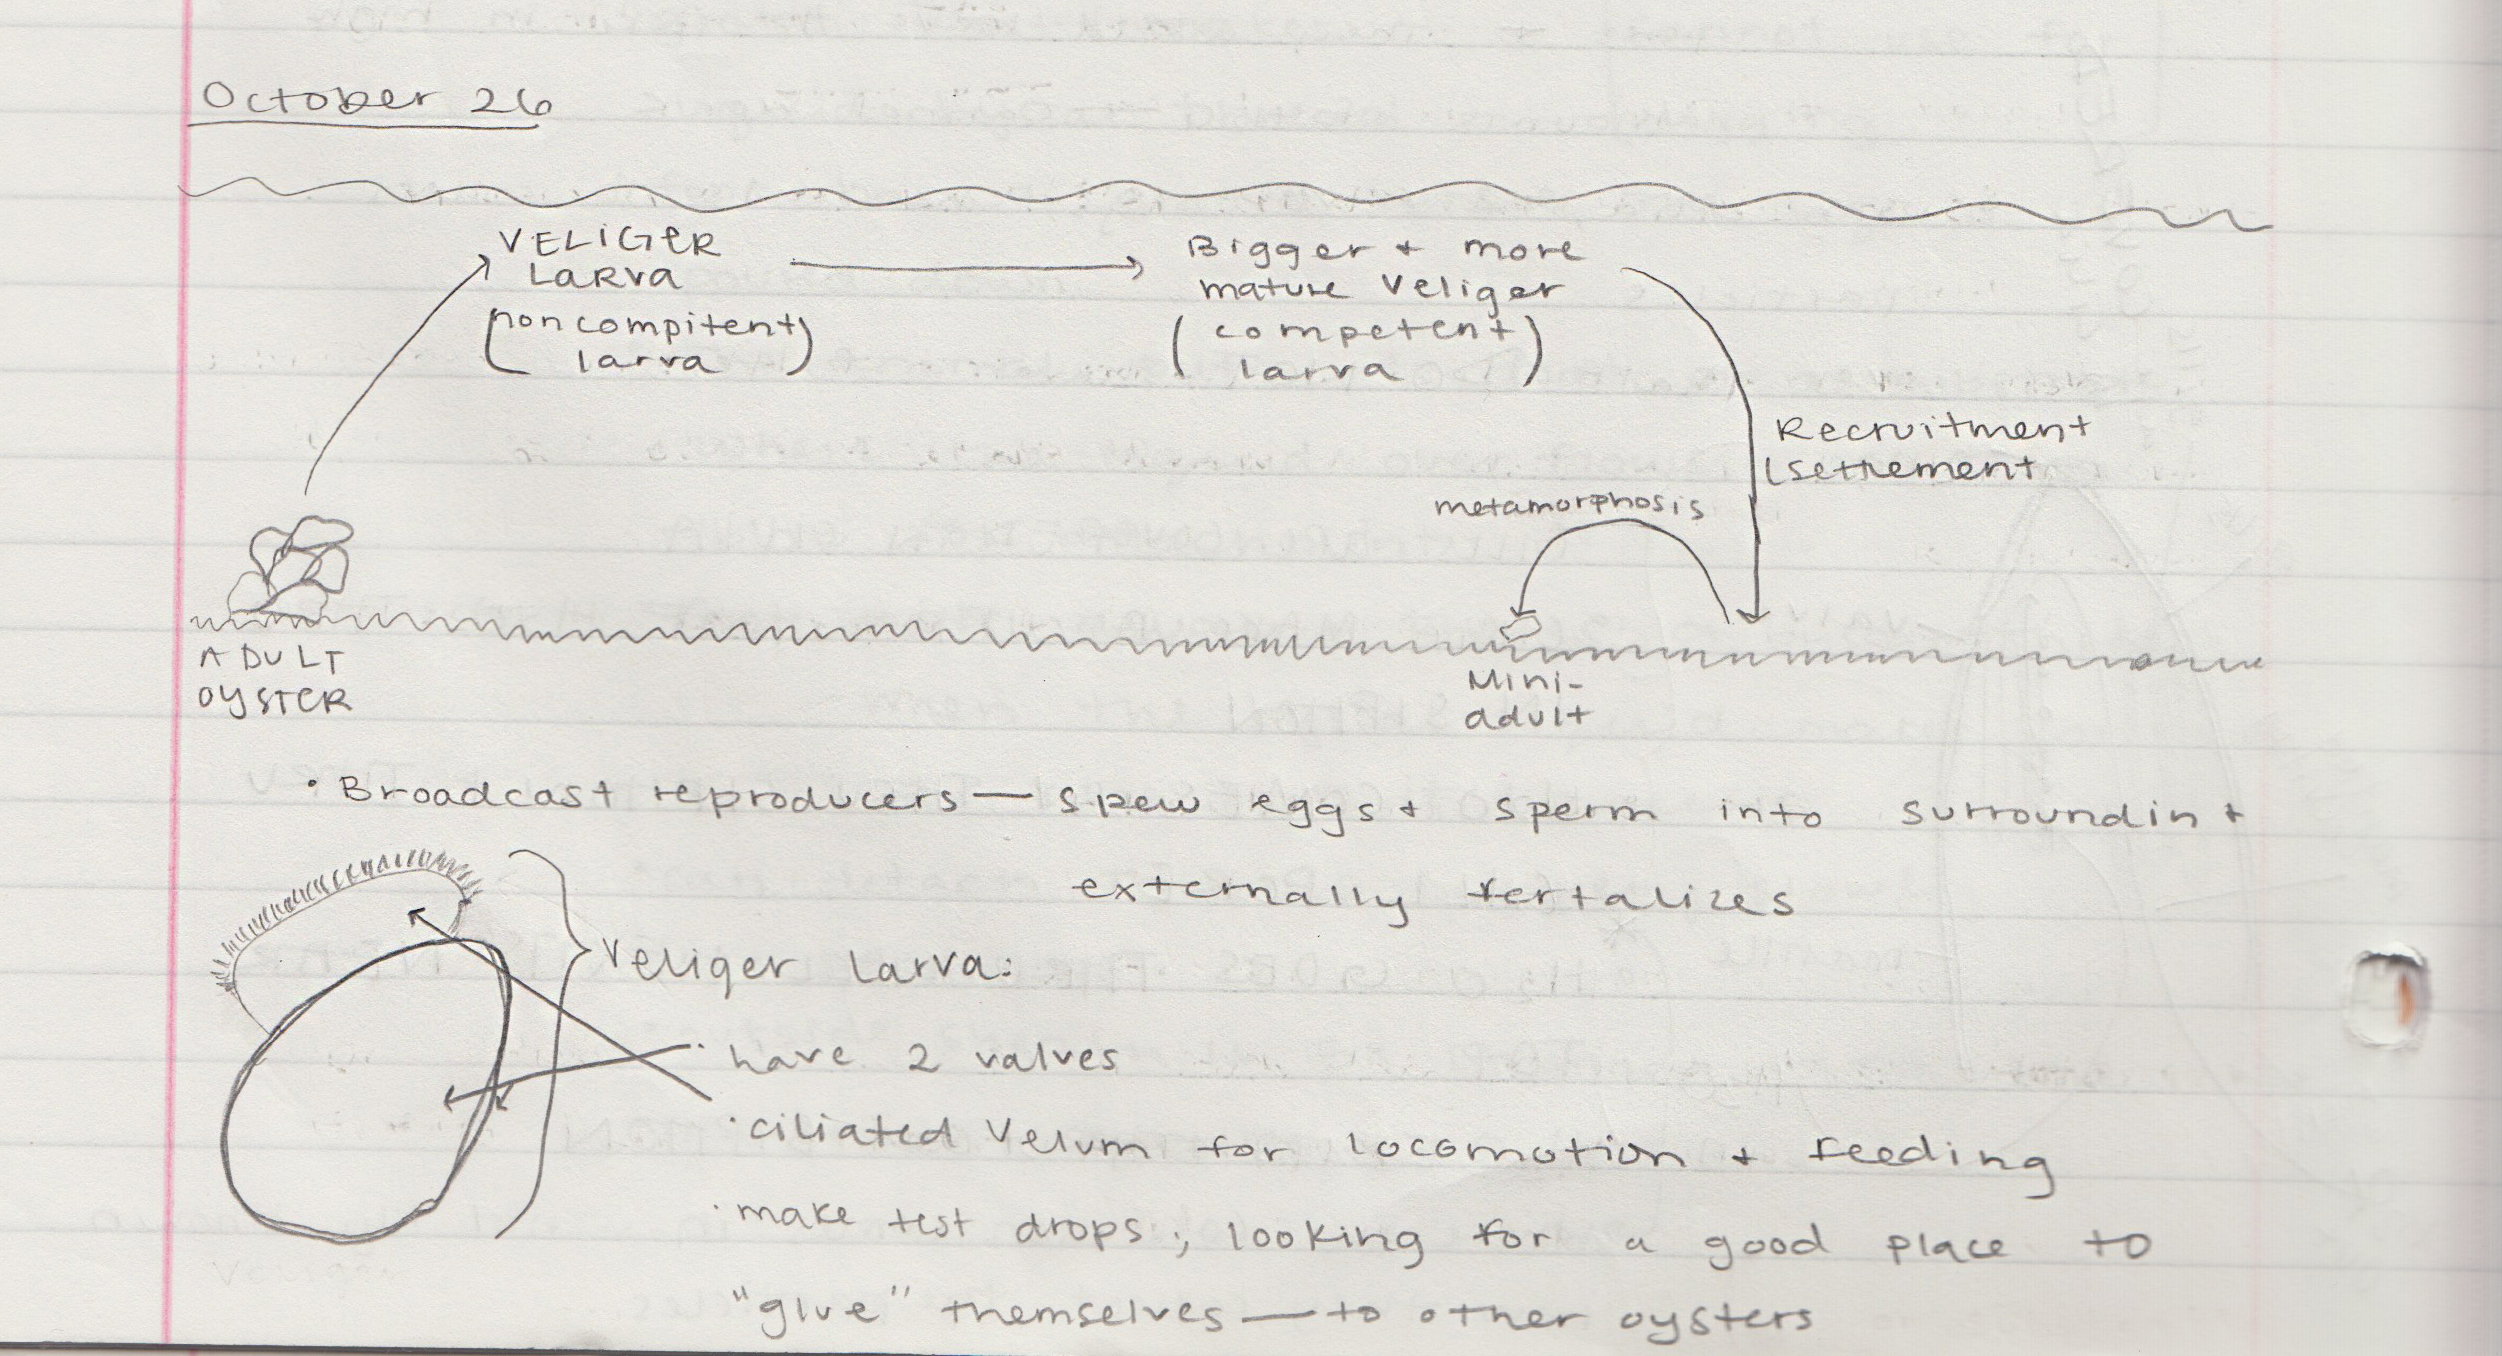 October 26
VELIGER
LARVA
(noncompitent
larva)
Bigger + more
mature Veliger
(competent
larva)
Recruitment
/settlement
metamorphosis
ADULT
OYSTER
Mini-
adult
• Broadcast reproducers — spew eggs + sperm into surroundin +
externally fertalizes
Veliger larva:
· have 2 valves
· ciliated Velum for locomotion + feeding
· make test drops; looking for a good place to
"glue" themselves — to other oysters